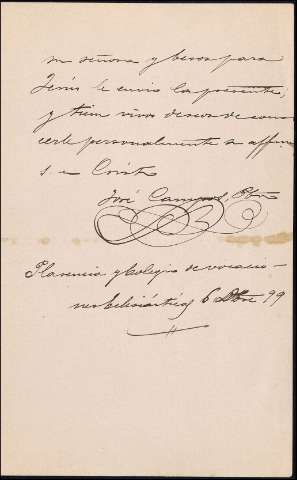 su señora y besos para
Jesús le envia la presente,
y tiene vivos deseos de cono-
cerle personalmente su affmo
S en Cristo
José Campos Pbro
Plasencia y Colegio de vocacio-
nes Eclesiásticas 6 Dbre 99